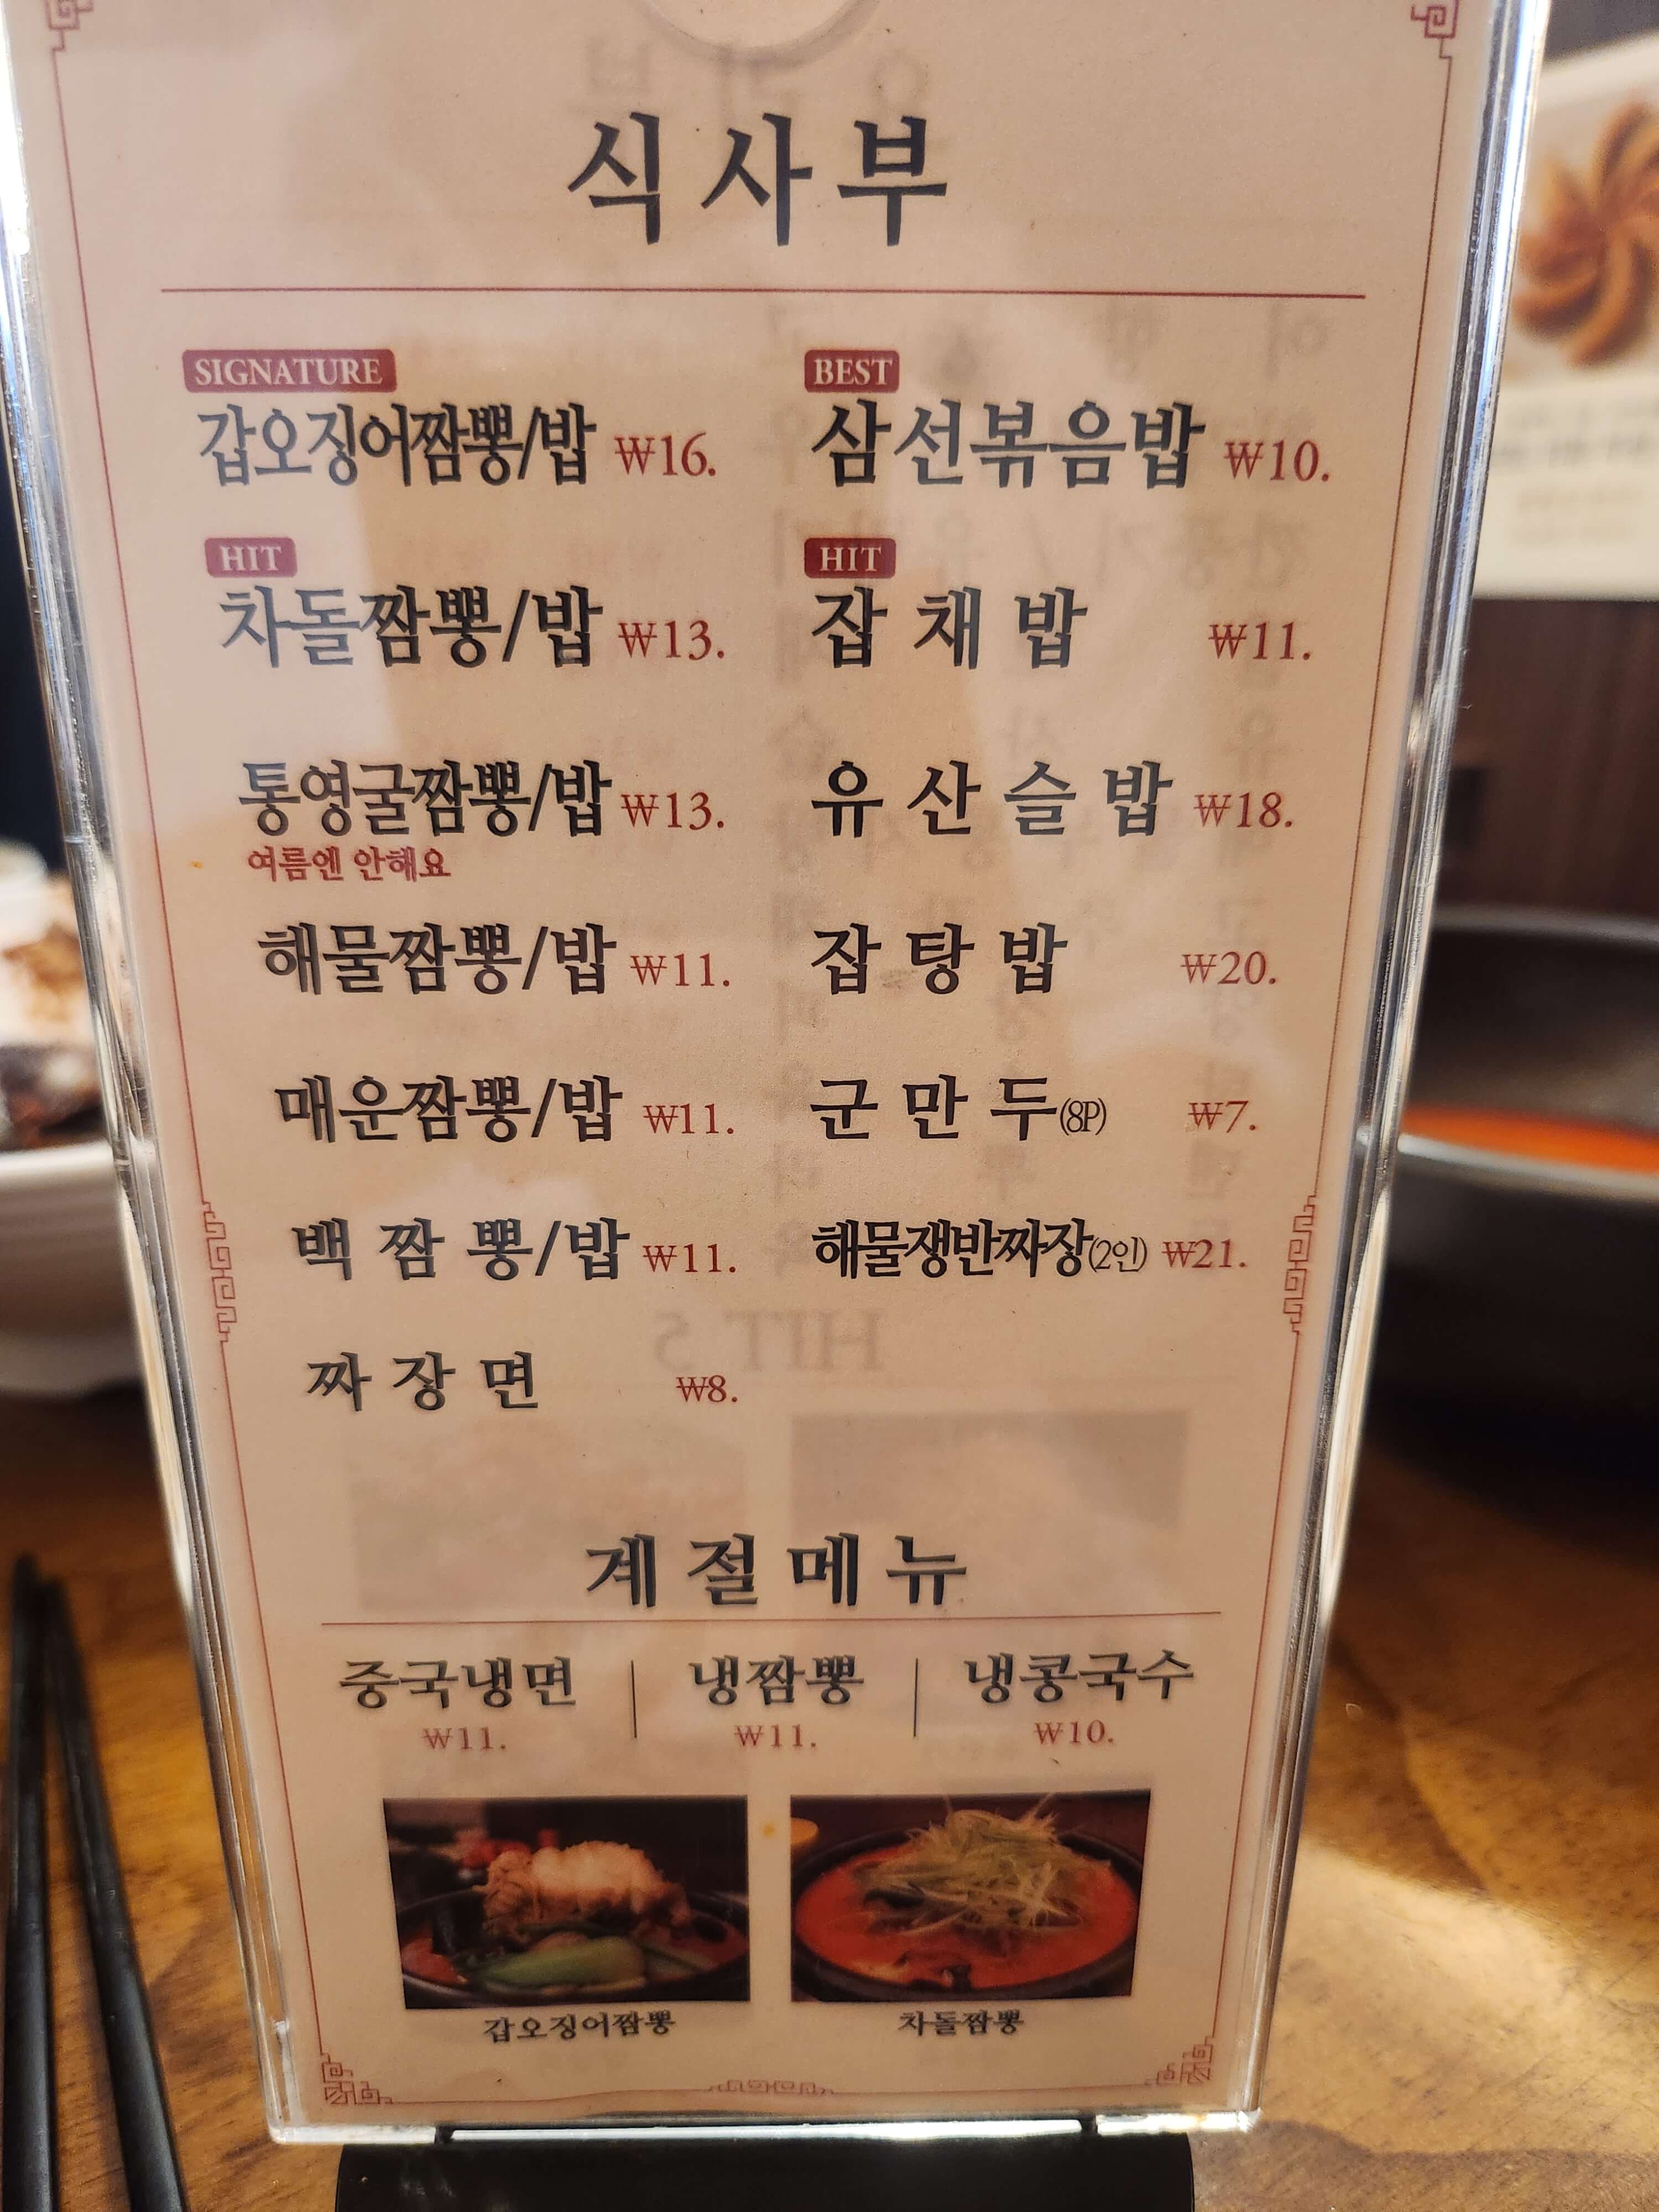 식사부
SIGNATURE
갑오징어짬뽕/밥 ₩16.
HIT
차돌짬뽕/밥 ₩13.
통영굴짬뽕/밥 ₩13.
여름엔 안해요
해물짬뽕/밥 ₩11.
매운짬뽕/밥 ₩11.
백짬뽕/밥 ₩11.
짜장면 ₩8.
BEST
삼선볶음밥 ₩10.
HIT
잡채밥 ₩11.
유산슬밥 ₩18.
잡탕밥 ₩20.
군만두(8P) ₩7.
해물쟁반짜장(2인) ₩21.
계절메뉴
중국냉면
₩11.
냉짬뽕
₩11.
냉콩국수
₩10.
갑오징어짬뽕
차돌짬뽕